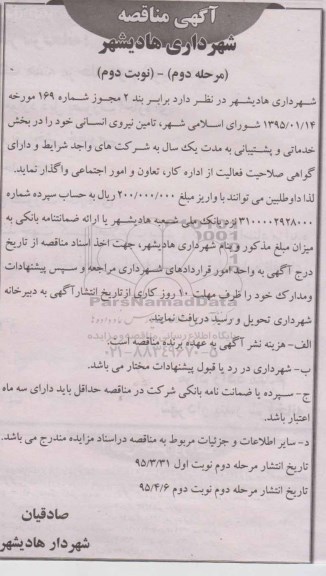 آگهی مناقصه
شهرداری هادیشهر
(مرحله دوم) - (نوبت دوم)
شهرداری هادیشهر در نظر دارد برابر بند ۲ مجوز شماره ۱۶۹ مورخه
۱۳۹۵/۰۱/۱۴ شورای اسلامی شهر، تامین نیروی انسانی خود را در بخش
خدماتی و پشتیبانی به مدت یک سال به شرکت های واجد شرایط و دارای
گواهی صلاحیت فعالیت از اداره کار، تعاون و امور اجتماعی واگذار نماید.
لذا داوطلبین می توانند با واریز مبلغ ۲۰۰/۰۰۰/۰۰۰ ریال به حساب سپرده شماره
۳۱۰۰۰۰۲۹۲۸۰۰۰ نزد بانک ملی شعبه هادیشهر یا ارائه ضمانتنامه بانکی به
میزان مبلغ مذکور و بنام شهرداری هادیشهر، جهت اخذ اسناد مناقصه از تاریخ
درج آگهی به واحد امور قراردادهای شهرداری مراجعه و سپس پیشنهادات
ومدارک خود را ظرف مهلت ۱۰ روز کاری از تاریخ انتشار آگهی به دبیرخانه
شهرداری تحویل و رسید دریافت نمایند.
الف- هزینه نشر آگهی به عهده برنده مناقصه است.
ب- شهرداری در رد یا قبول پیشنهادات مختار می باشد.
ج- سپرده یا ضمانت نامه بانکی شرکت در مناقصه حداقل باید دارای سه ماه
اعتبار باشد.
د- سایر اطلاعات و جزئیات مربوط به مناقصه دراسناد مزایده مندرج می باشد.
تاریخ انتشار مرحله دوم نوبت اول ۹۵/۳/۳۱
تاریخ انتشار مرحله دوم نوبت دوم ۹۵/۴/۶
صادقیان
شهردار هادیشهر
ParsNamadData
پایگاه اطلاع رسانی مناقصه و مزایده
۰۲۱-۸۸۳۴۹۶۷۰-۵